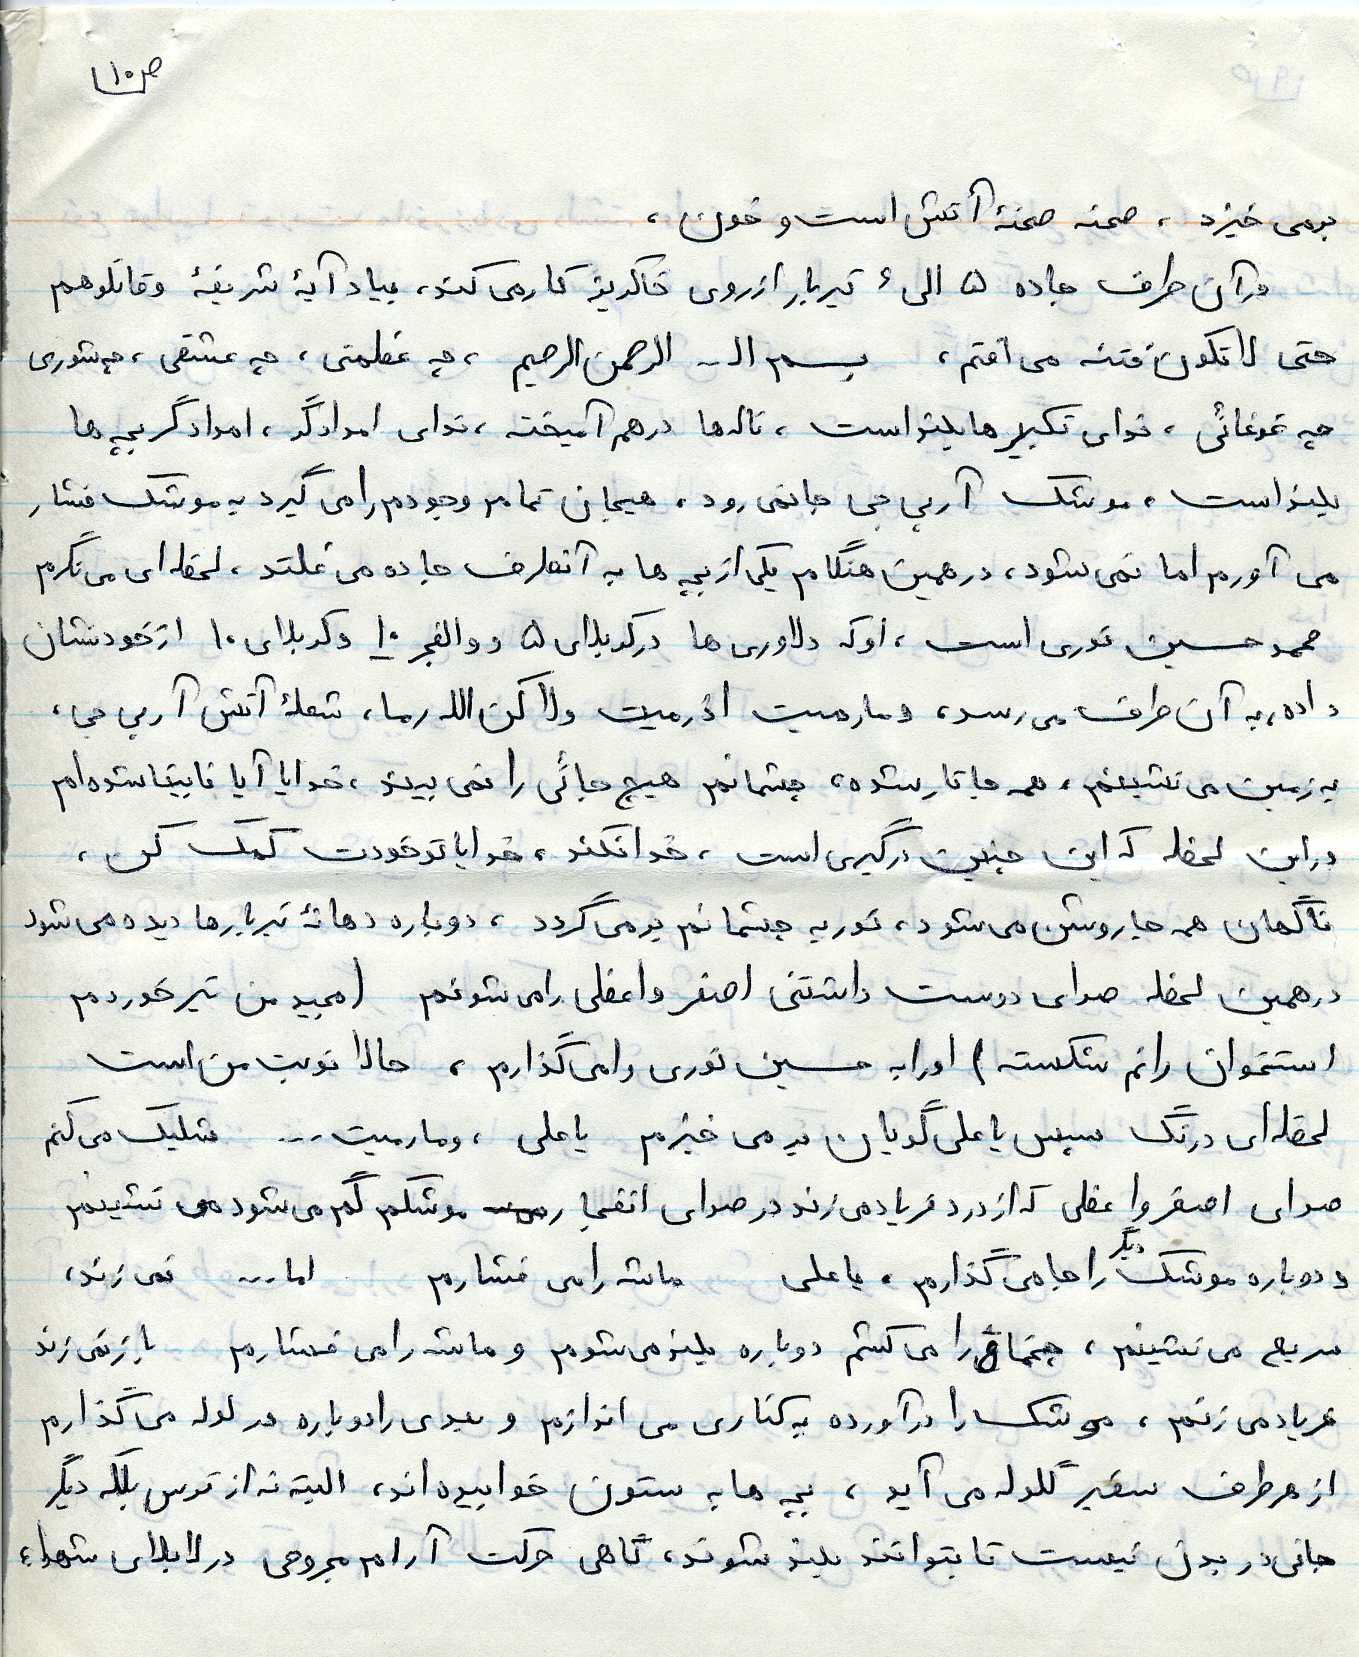 ص۱۰
برمی خیزد ، صحنه صحنهٔ آتش است و خون ،
در آن طرف جاده ۵ الی ۶ تیربار از روی خاکریز کار می کند، بیاد آیهٔ شریفهٔ وقاتلوهم
حتی لاتکون فتنه می افتم ، بسم ال... الرحمن الرحیم ، چه عظمتی ، چه عشقی ، چه شوری
چه غوغائی ، ندای تکبیرها بلند است ، ناله ها درهم آمیخته ، ندای امدادگر ، امدادگر بچه ها
بلند است ، موشک آرپی جی جا نمی رود ، هیجان تمام وجودم را می گیرد به موشک فشار
می آورم اما نمی شود ، در همین هنگام یکی از بچه ها به آنطرف جاده می غلتد ، لحظه ای می نگرم
محمد حسین نوری است ، او که دلاوری ها در کربلای ۵ و والفجر ۱۰ و کربلای ۱۰ از خود نشان
داده ، به آن طرف می رسد ، و مارمیت اذ رمیت ولاکن الله رما ، شعلهٔ آتش آرپی جی ،
به زمین می نشینم ، همه جا تار شده ، چشمانم هیچ جائی را نمی بیند ، خدایا آیا نابینا شده ام
در این لحظه که این چنین درگیری است ، خدا نکند ، خدایا تو خودت کمک کن ،
ناگهان همه جا روشن می شود ، نور به چشمانم بر می گردد ، دوباره دهانهٔ تیربارها دیده می شود
در همین لحظه صدای دوست داشتنی اصغر واعظی را می شنوم (مجید من تیر خوردم
استخوان رانم شکسته ) او را به حسین نوری وا می گذارم ، حالا نوبت من است
لحظه ای درنگ سپس یا علی گویان بر می خیزم یا علی ، ومارمیت ... شلیک می کنم
صدای اصغر واعظی که از درد فریاد می زند در صدای انفجار موشکم گم می شود می نشینم
و دوباره موشک دیگر را جا می گذارم ، یا علی ماشه را می فشارم اما ... نمی زند ،
سریع می نشینم ، چخماق را می کشم دوباره بلند می شوم و ماشه را می فشارم باز نمی زند
فریاد می زنم ، موشک را در آورده به کناری می اندازم و بعدی را دوباره در لوله می گذارم
از هر طرف سفیر گلوله می آید ، بچه ها به ستون خوابیده اند ، البته نه از ترس بلکه دیگر
جانی در بدن نیست تا بتوانند بلند شوند ، گاهی حرکت آرام مجروحی در لابلای شهداء